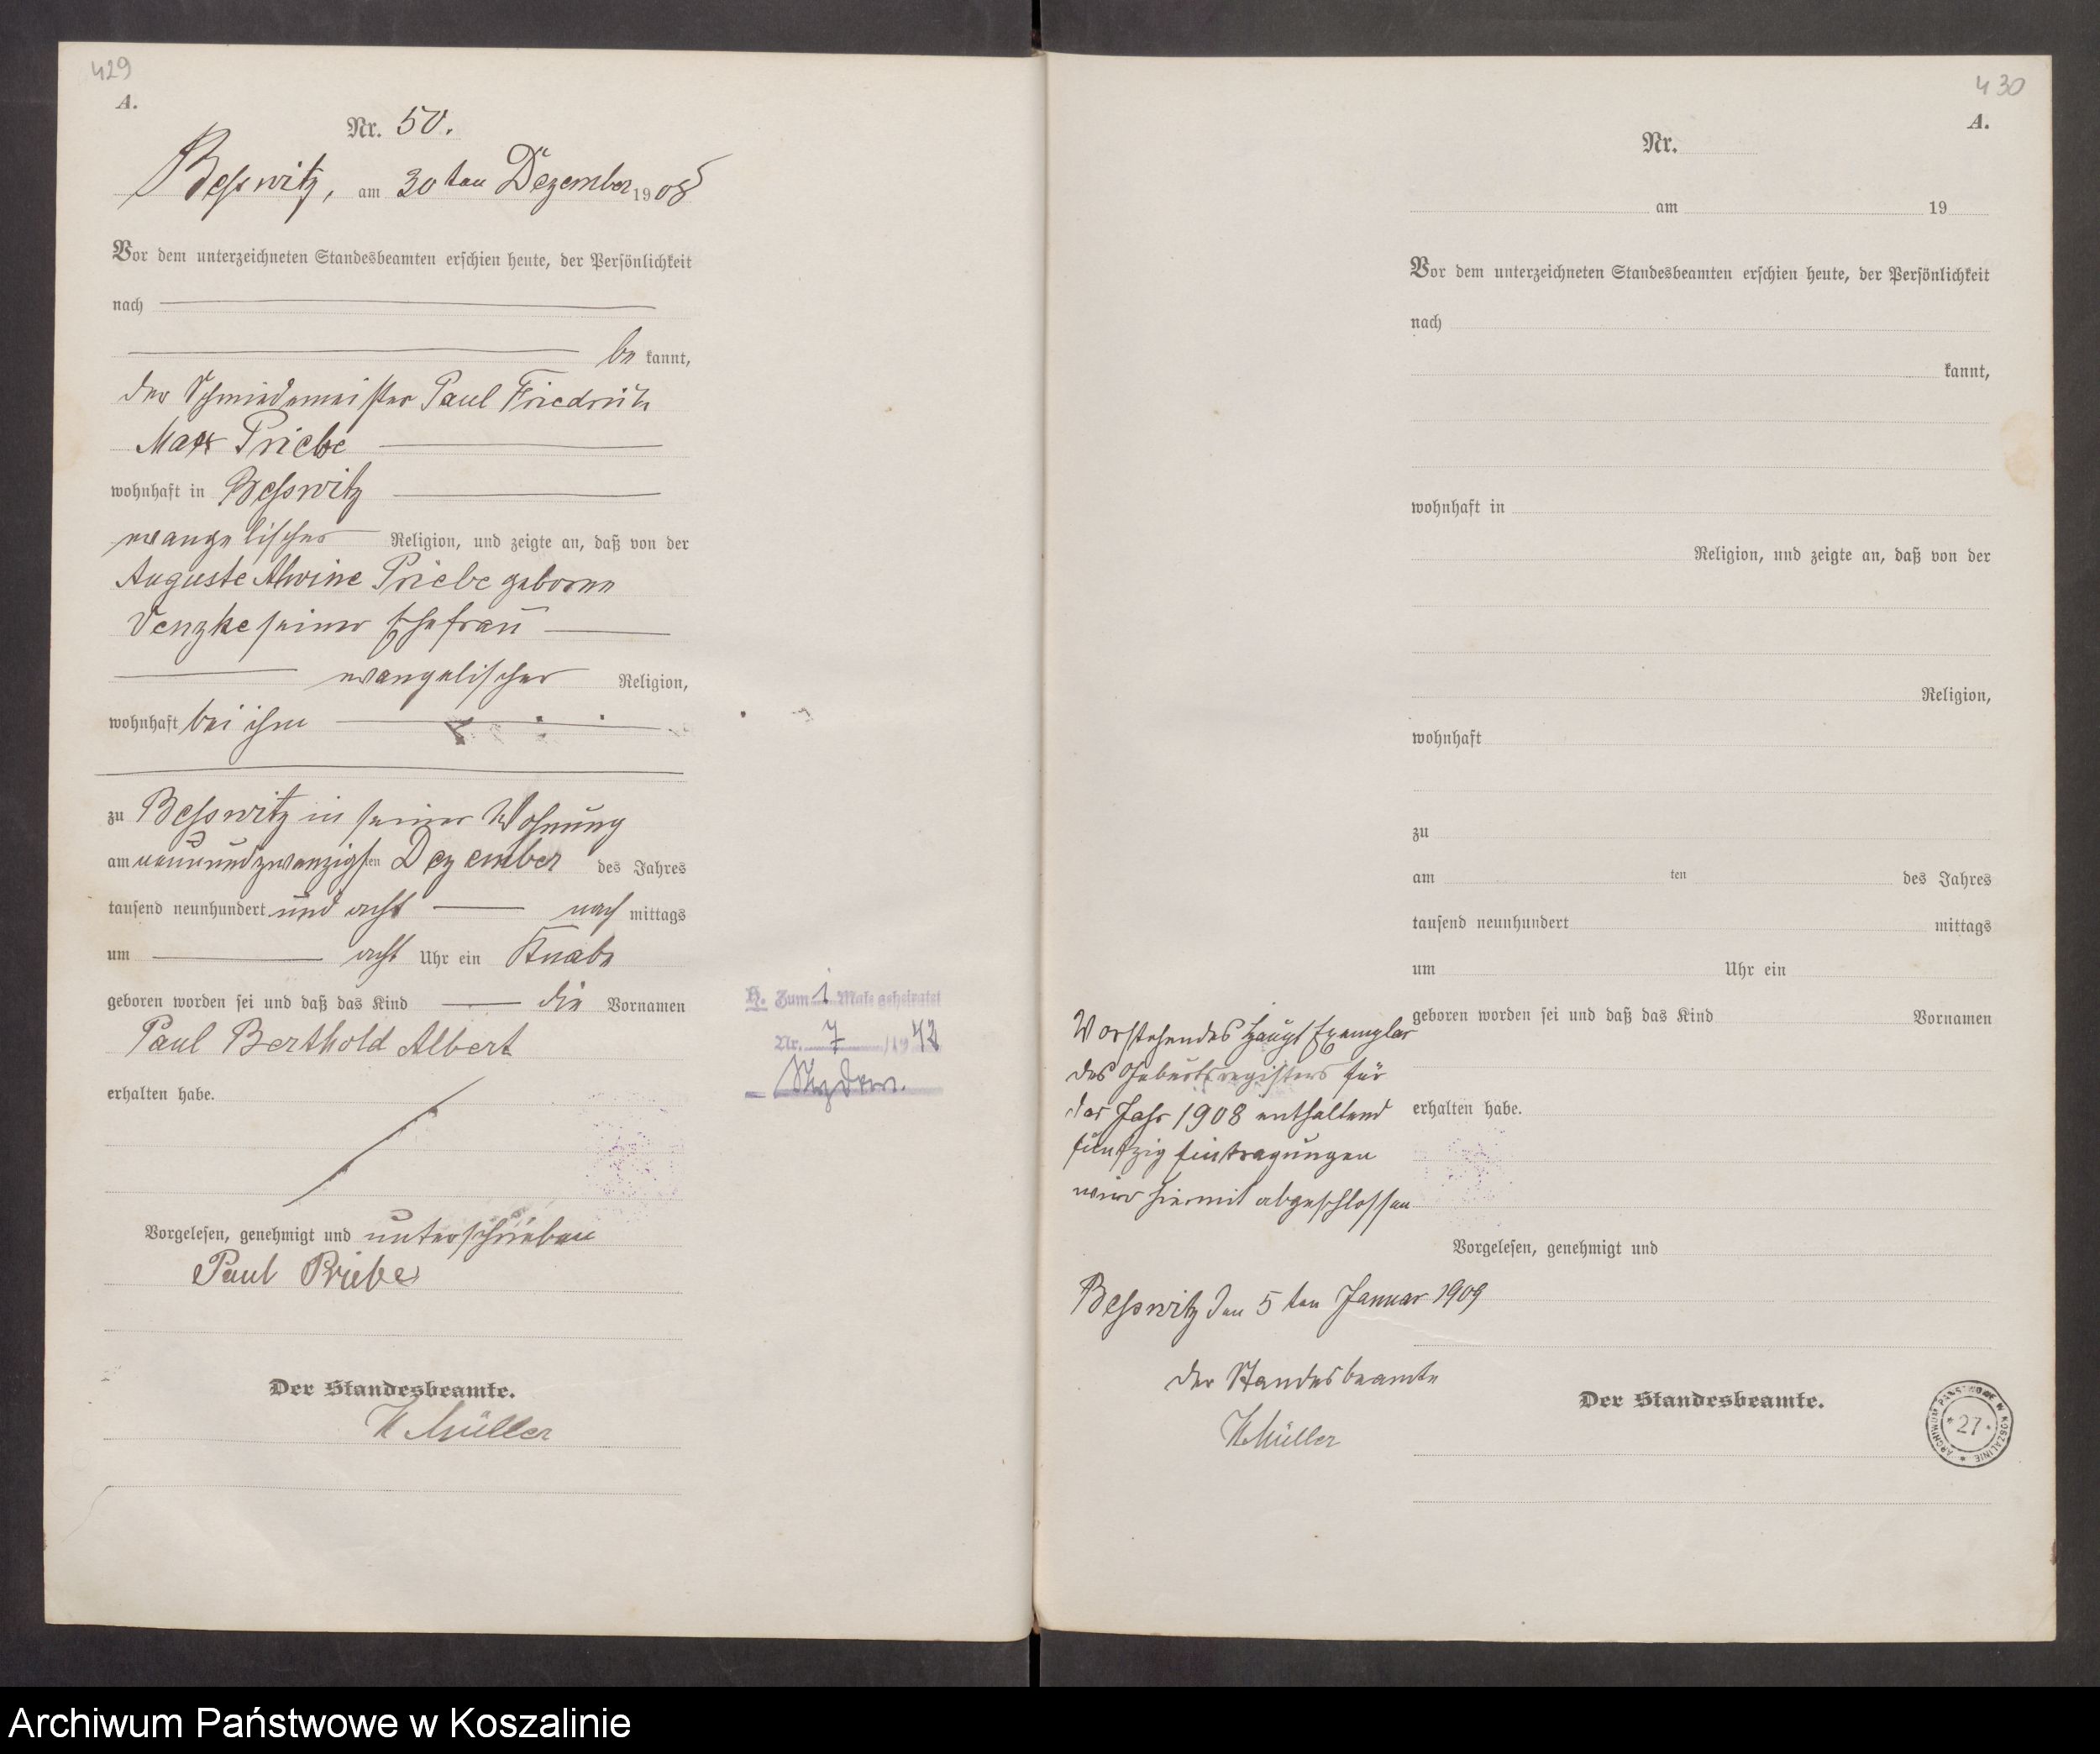 429
A.
Nr. 50.
Besswitz, am 30ten Dezember 1908
Vor dem unterzeichneten Standesbeamten erschien heute, der Persönlichkeit
nach
be kannt,
der Schmiedemeister Paul Friedrich
Max Priebe
wohnhaft in Besswitz
evangelischer Religion, und zeigte an, daß von der
Auguste Alwine Priebe geborene
Venzke seiner Ehefrau
evangelischer Religion,
wohnhaft bei ihm
zu Besswitz in seiner Wohnung
am neunundzwanzigsten Dezember des Jahres
tausend neunhundert und acht nach mittags
um acht Uhr ein Knabe
geboren worden sei und daß das Kind die Vornamen
Paul Berthold Albert
erhalten habe.
Vorgelesen, genehmigt und unterschrieben
Paul Priebe
Der Standesbeamte.
Müller
Zum 1 Male geheiratet
Nr. 7 /1942
430
A.
Nr.
am 19
Vor dem unterzeichneten Standesbeamten erschien heute, der Persönlichkeit
nach
kannt,
wohnhaft in
Religion, und zeigte an, daß von der
Religion,
wohnhaft
zu
am ten des Jahres
tausend neunhundert mittags
um Uhr ein
geboren worden sei und daß das Kind Vornamen
erhalten habe.
Vorgelesen, genehmigt und
Der Standesbeamte.
Vorstehendes Haupt Exemplar
des Geburtsregisters für
das Jahr 1908 enthaltend
fünfzig Eintragungen
wird hiermit abgeschlossen
Besswitz den 5ten Januar 1909
Der Standesbeamte
Müller
ARCHIWUM PAŃSTWOWE W KOSZALINIE
* 27 *
Archiwum Państwowe w Koszalinie